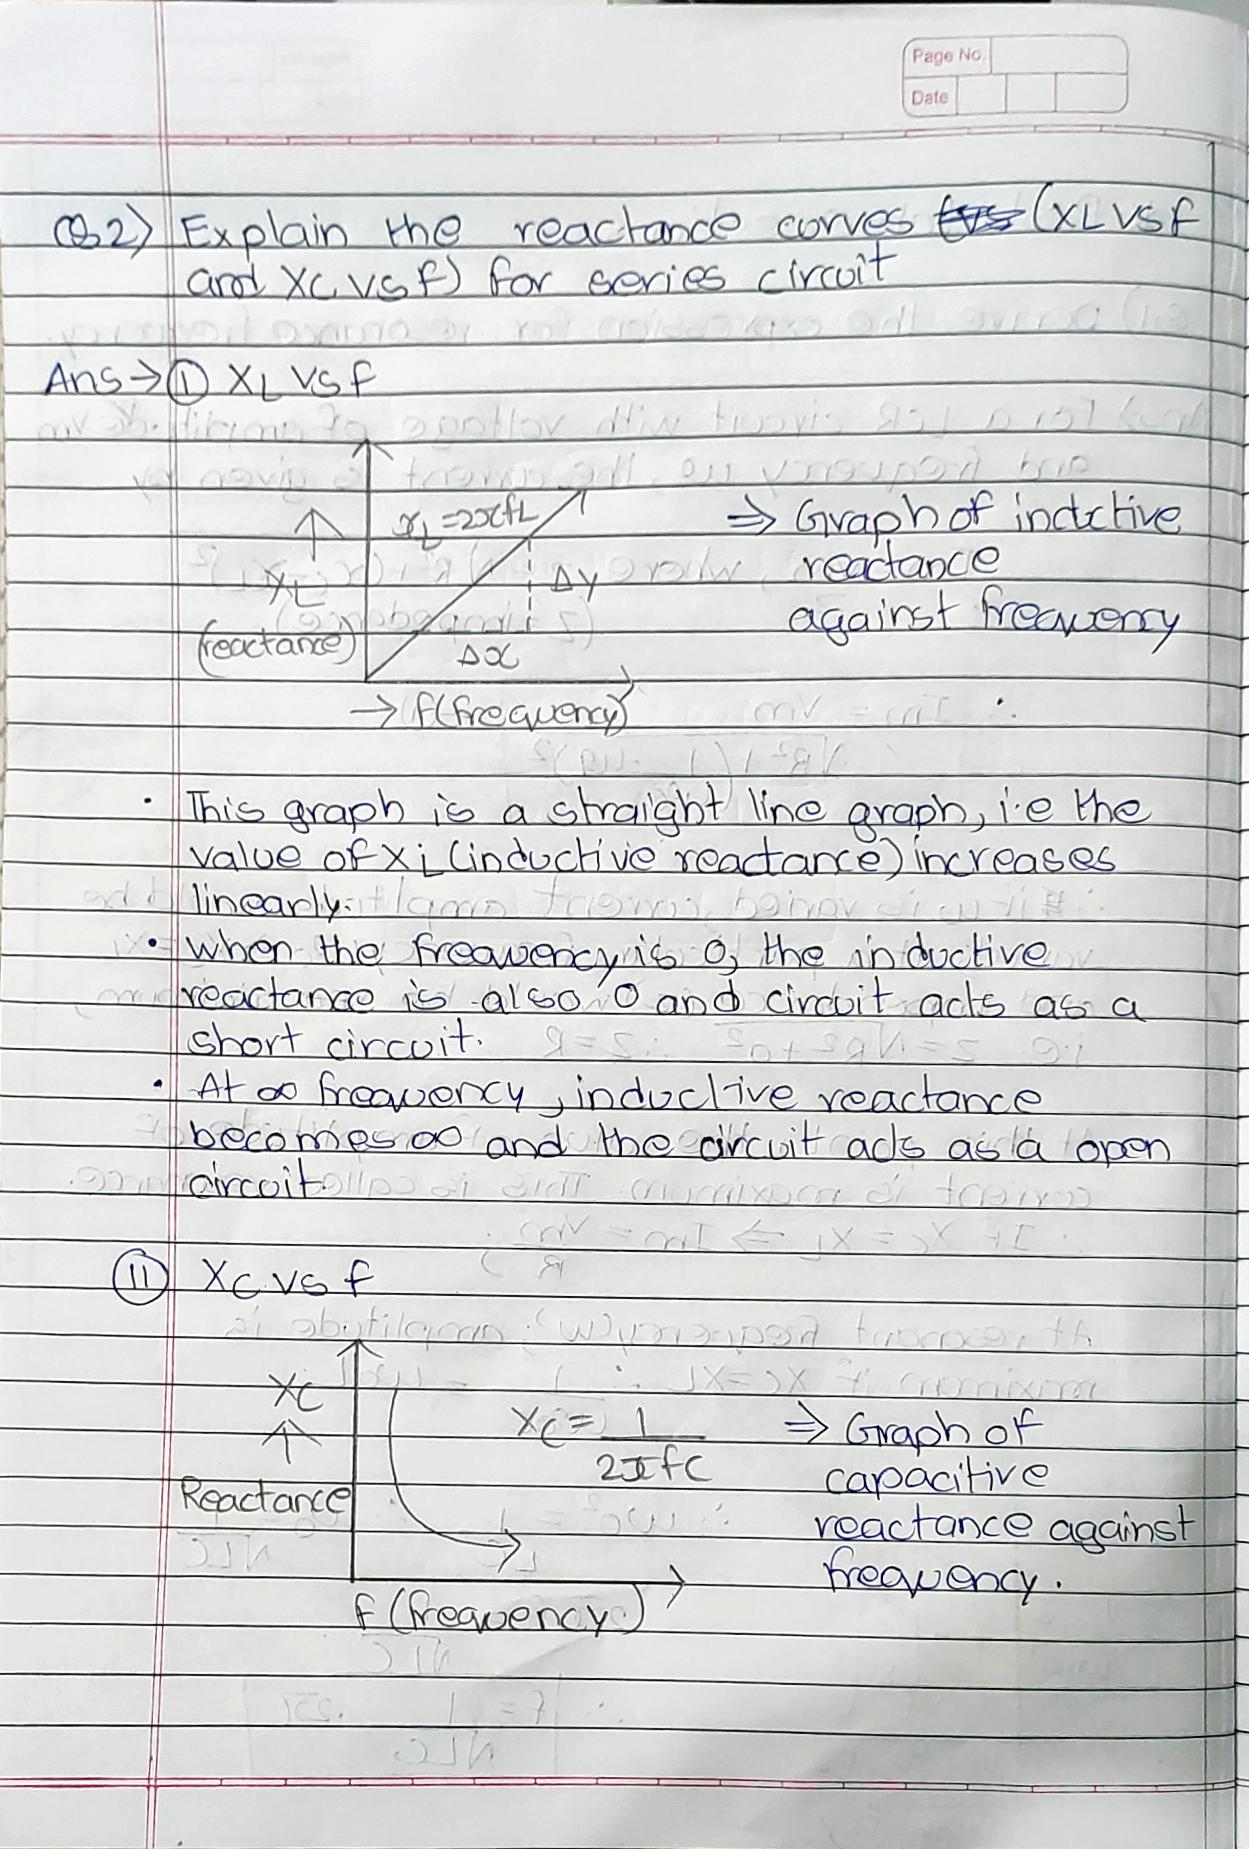 Page No.
Date
Q2) Explain the reactance corves (XL VS f
and XC VS f) for series circuit
Ans → ① XL VS f
XL = 2πfL
⇒ Graph of indctive
XL
Δy
reactance
against frequency
(reactance)
Δx
→ f(frequency)
• This graph is a straight line graph, i.e the
value of XL (inductive reactance) increases
linearly.
• when the frequency is 0, the inductive
reactance is also 0 and circuit acts as a
short circuit.
• At ∞ frequency, inductive reactance
becomes ∞ and the circuit acts as a open
circuit.
⑪ XC VS f
XC
XC = 1
2πfC
⇒ Graph of
capacitive
Reactance
reactance against
frequency.
f (frequency)